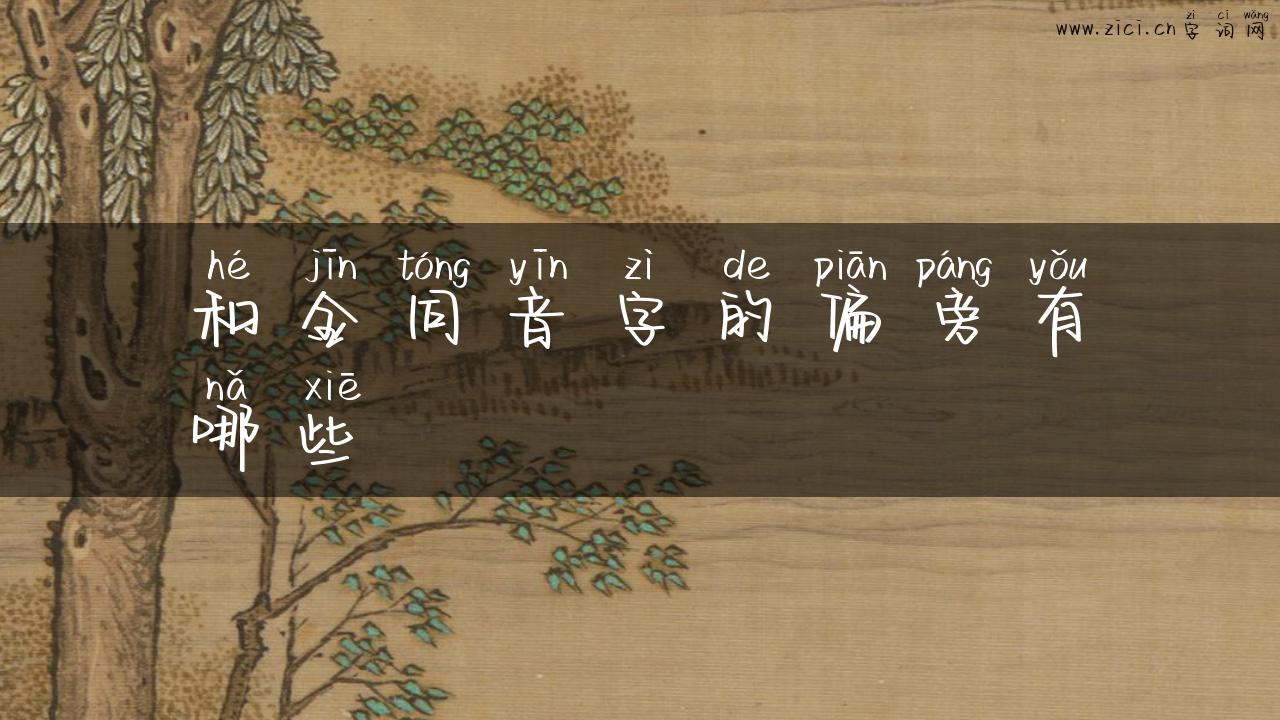 zì cí wǎng
www.zici.cn 字词网
hé jīn tóng yīn zì de piān páng yǒu
和金同音字的偏旁有
nǎ xiē
哪些